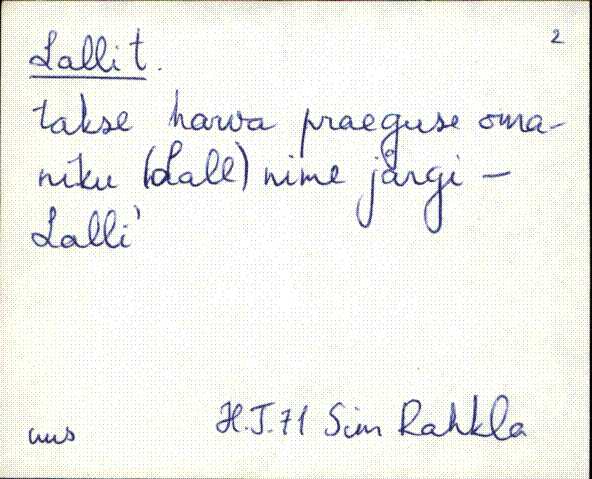 2
Lalli t.
takse harva praeguse oma-
niku (Lall) nime järgi –
Lalli'
uus H.J.71 Sim Rahkla